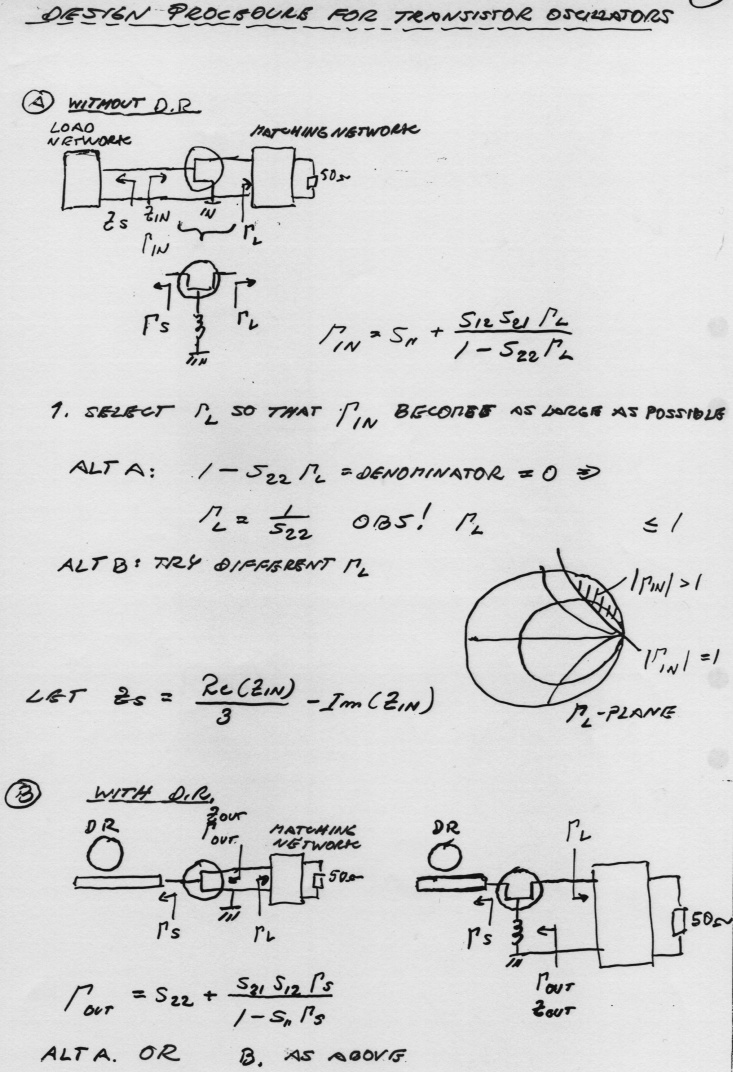 DESIGN PROCEDURE FOR TRANSISTOR OSCILLATORS
Ⓐ WITHOUT D.R.
LOAD NETWORK
MATCHING NETWORK
50Ω
Z_S Z_IN
Γ_IN Γ_L
Γ_S Γ_L
Γ_IN = S₁₁ + (S₁₂ S₂₁ Γ_L) / (1 - S₂₂ Γ_L)
1. SELECT Γ_L SO THAT Γ_IN BECOMES AS LARGE AS POSSIBLE
ALT A: 1 - S₂₂ Γ_L = DENOMINATOR = 0 ⇒
Γ_L = 1/S₂₂ OBS! Γ_L ≤ 1
ALT B: TRY DIFFERENT Γ_L
|Γ_IN| > 1
|Γ_IN| = 1
Γ_L-PLANE
LET Z_S = Re(Z_IN)/3 - Im(Z_IN)
Ⓑ WITH D.R.
DR
Z_OUT
Γ_OUT
MATCHING NETWORK
50Ω
Γ_S Γ_L
DR
Γ_L
50Ω
Γ_S
Γ_OUT
Z_OUT
Γ_OUT = S₂₂ + (S₂₁ S₁₂ Γ_S) / (1 - S₁₁ Γ_S)
ALT A. OR B. AS ABOVE